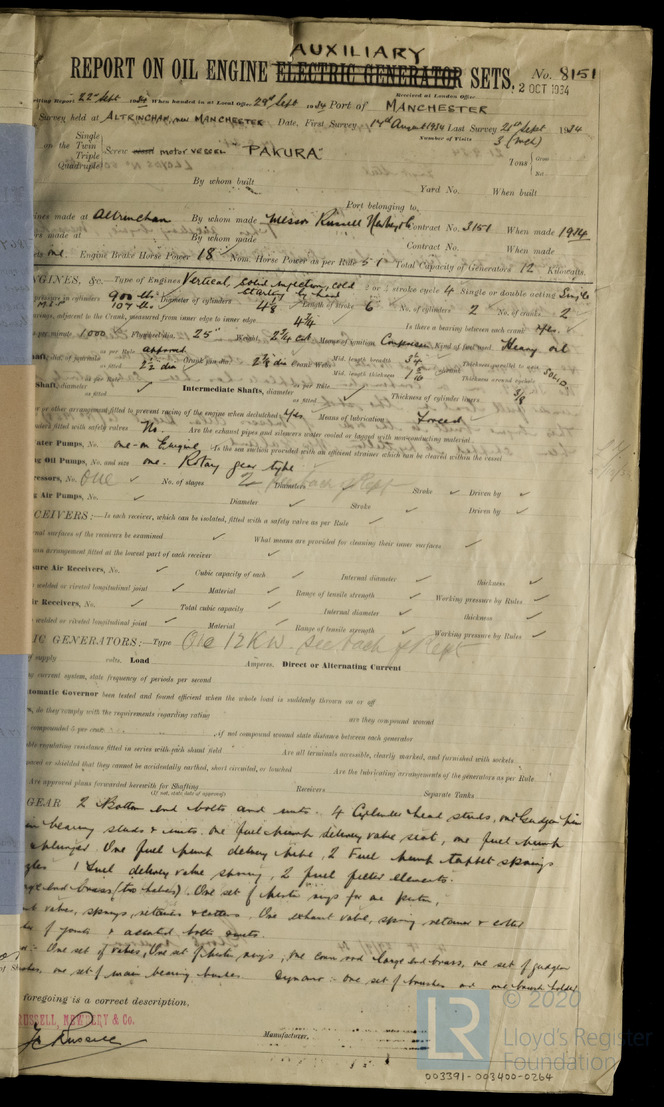 AUXILIARY
REPORT ON OIL ENGINE ELECTRIC GENERATOR SETS. No. 8151
Received at London Office 2 OCT 1934
22nd Sept 1934 When handed in at Local Office 29th Sept 1934 Port of MANCHESTER
Survey held at ALTRINCHAM, MANCHESTER Date, First Survey 17th August 1934 Last Survey 21st Sept 1934
Number of Visits 3
Single
on the Twin
Triple
Quadruple
Screw motor vessel "PAKURA"
Tons Gross
Net
By whom built Yard No. When built
Port belonging to
made at Altrincham By whom made Messrs Russell Newbery & Co Contract No. 3151 When made 1934
made at By whom made Contract No. When made
one Engine Brake Horse Power 18 Nom. Horse Power as per Rule 5.1 Total Capacity of Generators 12 Kilowatts.
ENGINES, &c.—Type of Engines Vertical, Solid injection, cold starting by hand 2 or 2 stroke cycle 4 Single or double acting Single
pressure in cylinders 900 lbs Diameter of cylinders 4 1/8 Length of stroke 6 No. of cylinders 2 No. of cranks 2
bearings, adjacent to the Crank, measured from inner edge to inner edge 4 3/4 Is there a bearing between each crank yes
per minute 1000 Flywheel dia. 25" Weight 2 3/4 cwt Means of ignition Compression Kind of fuel used Heavy oil
as per Rule approved
Crank pin dia. 2 5/8 dia Crank Webs Mid. length breadth Mid. length thickness Thickness parallel to axis SOLID
Thickness around eyehole
Shaft, diameter as per Rule as fitted Intermediate Shafts, diameter as per Rule as fitted Thickness of cylinder liners 3/8
or other arrangement fitted to prevent racing of the engine when declutched yes Means of lubrication Forced
fitted with safety valves No Are the exhaust pipes and silencers water cooled or lagged with non-conducting material
Water Pumps, No. one on Engine Is the sea suction provided with an efficient strainer which can be cleared within the vessel
Oil Pumps, No. and size one. Rotary gear type
No. One No. of stages 2 Diameters see back of Rept Stroke Driven by
Air Pumps, No. Diameter Stroke Driven by
RECEIVERS:—Is each receiver, which can be isolated, fitted with a safety valve as per Rule
surfaces of the receivers be examined What means are provided for cleaning their inner surfaces
arrangement fitted at the lowest part of each receiver
Air Receivers, No. Cubic capacity of each Internal diameter thickness
welded or riveted longitudinal joint Material Range of tensile strength Working pressure by Rules
Air Receivers, No. Total cubic capacity Internal diameter thickness
welded or riveted longitudinal joint Material Range of tensile strength Working pressure by Rules
GENERATORS:—Type One 12 KW. see back of Rept
of supply volts. Load Amperes. Direct or Alternating Current
current system, state frequency of periods per second
Automatic Governor been tested and found efficient when the whole load is suddenly thrown on or off
do they comply with the requirements regarding rating are they compound wound
compounded 5 per cent. if not compound wound state distance between each generator
regulating resistance fitted in series with each shunt field Are all terminals accessible, clearly marked, and furnished with sockets
or shielded that they cannot be accidentally earthed, short circuited, or touched Are the lubricating arrangements of the generators as per Rule
Are approved plans forwarded herewith for Shafting Receivers Separate Tanks
(If not, state date of approval)
GEAR 2 Bottom end bolts and nuts. 4 Cylinder head studs, one Gudgeon pin
bearing studs & nuts. One fuel pump delivery valve seat, one fuel pump
plunger One fuel pump delivery valve, 2 Fuel pump tappet springs
1 Fuel delivery valve spring, 2 fuel filter elements.
end brasses (two halves). One set of piston rings for one piston,
valves, springs, retainers & cotters. One exhaust valve, spring, retainer & cotter
of joints & assorted bolts & nuts.
One set of valves, One set of piston rings, one conn rod large end brass, one set of gudgeon
bushes, one set of main bearing bushes Dynamo:- One set of brushes and one brush holder
foregoing is a correct description,
RUSSELL, NEWBERY & Co.
Manufacturer.
LR
© 2020
Lloyd's Register
Foundation
003391-003400-0264